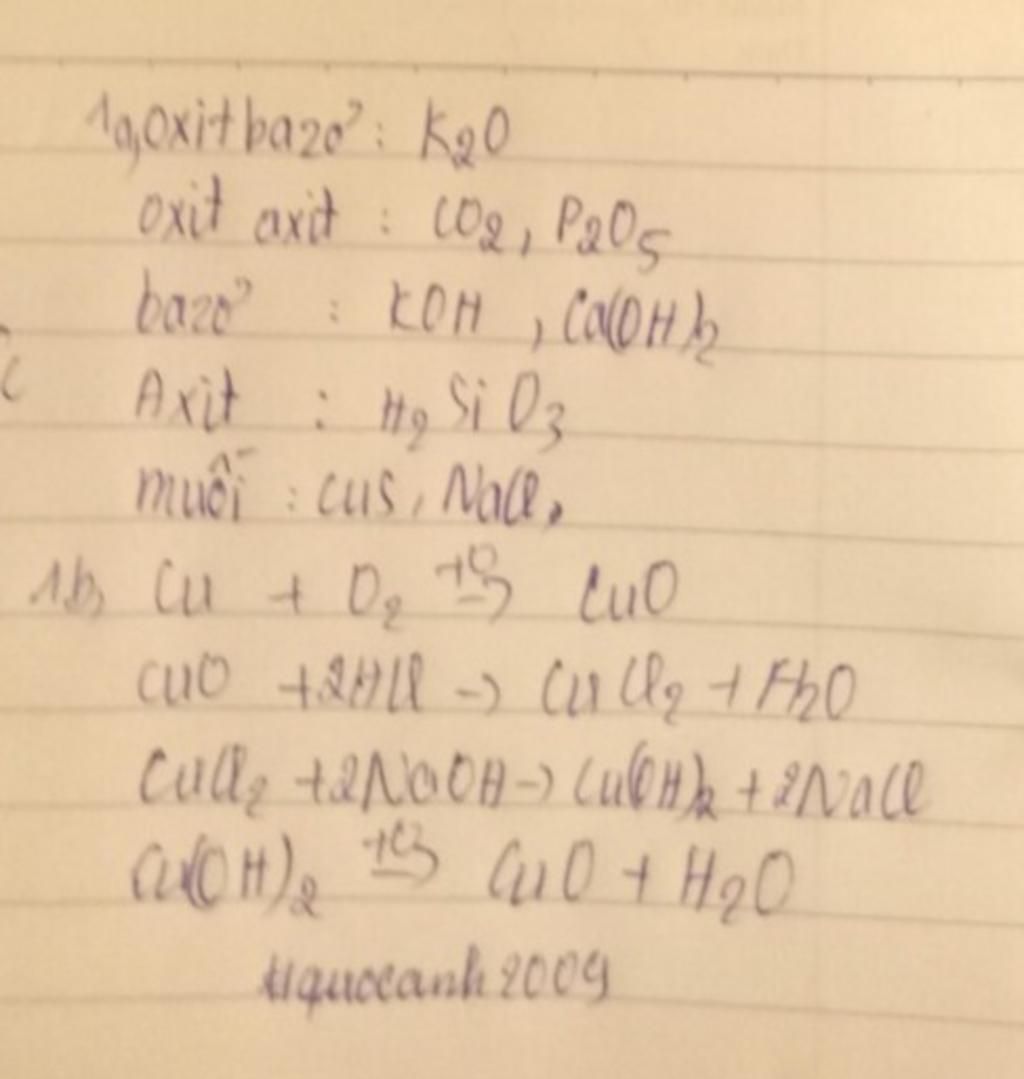 1a, oxit bazơ : K2O
oxit axit : CO2, P2O5
bazơ : KOH , Ca(OH)2
Axit : H2SiO3
muối : CuS, NaCl,
1b, Cu + O2 t°→ CuO
CuO +2HCl → CuCl2 + H2O
CuCl2 +2NaOH → Cu(OH)2 + 2NaCl
Cu(OH)2 t°→ CuO + H2O